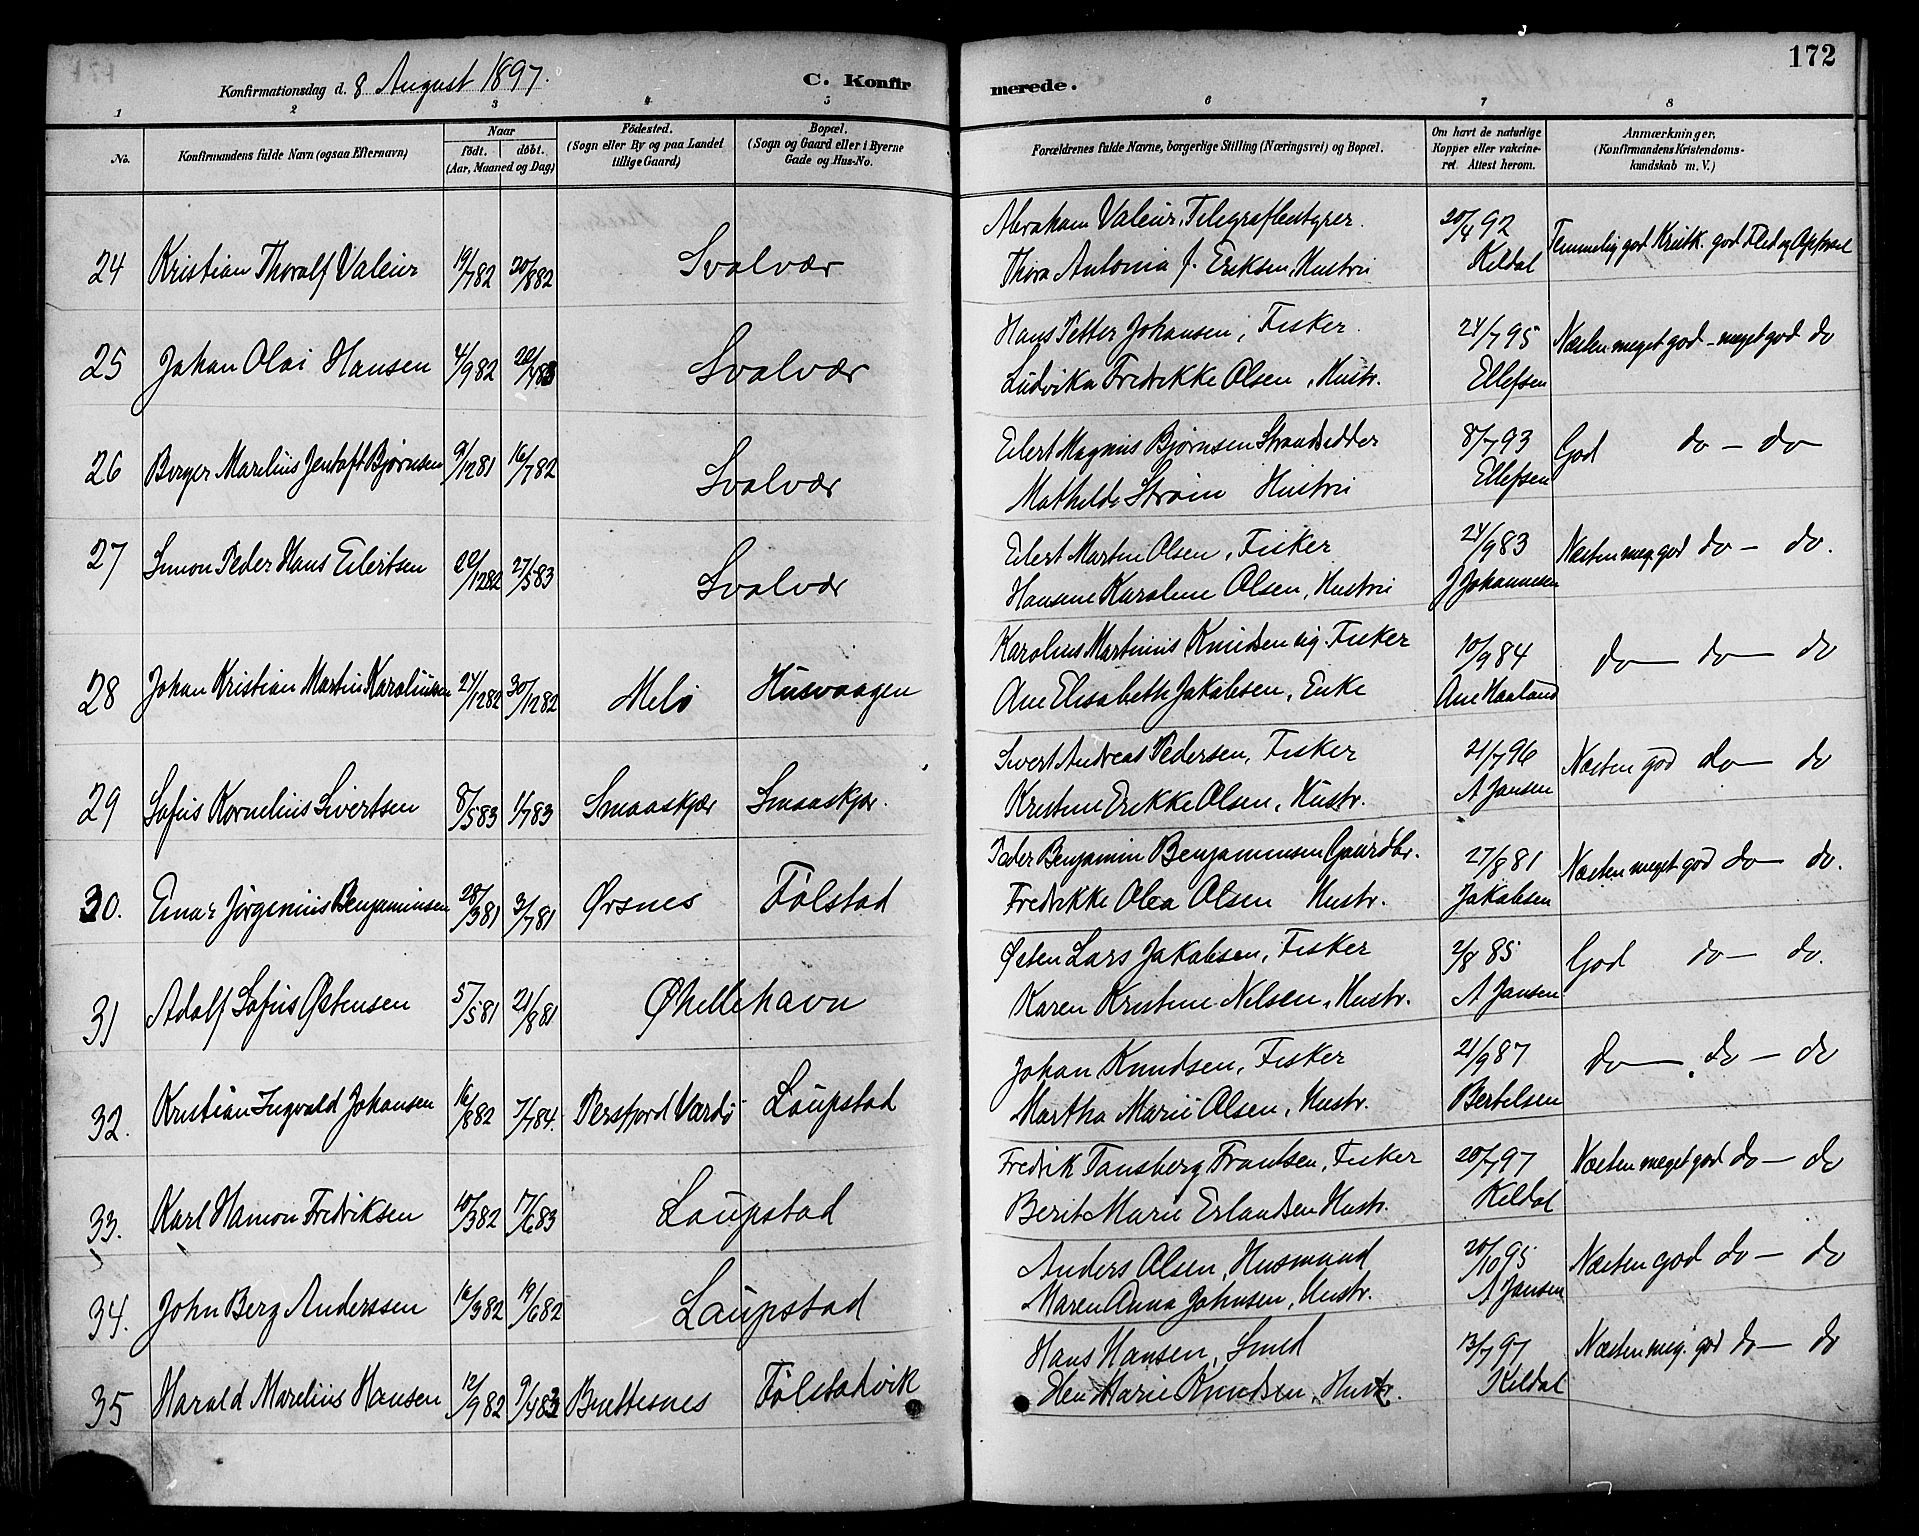 172
Konfirmationsdag d. 8 August 1897.
C. Konfirmerede.
1 2 3 4 5 6 7 8
No. Konfirmandens fulde Navn (ogsaa Efternavn) Naar födt. döbt. (Aar, Maaned og Dag) Födested. (Sogn eller By og paa Landet tillige Gaard) Bopæl. (Sogn og Gaard eller i Byerne Gade og Hus-No. Forældrenes fulde Navne, borgerlige Stilling (Næringsvei) og Bopæl. Om havt de naturlige Kopper eller vakcineret. Attest herom. Anmærkninger. (Konfirmandens Kristendomskundskab m. V.)
24 Kristian Thoralf Valeur 19/7 82 20/8 82 Svolvær Abraham Valeur, Telegrafbestyrer. 20/4 92 Temmelig god Kristk. god Flid og Opførsel
Thora Antonia f. Eriksen, Hustru Keldal
25 Johan Olai Hansen 4/9 82 22/4 83 Svolvær Hans Petter Johansen, Fisker. 24/7 95 Næsten meget god - meget god do
Ludvika Fredrikke Olsen, Hustr. Ellefsen
26 Berger Marelius Jentoft Bjørnsen 9/12 81 16/7 82 Svolvær Eilert Magnus Bjørnsen Strandsidder 8/7 93 God do - do
Mathilde Strøm Hustru Ellefsen
27 Simon Peder Hans Eilertsen 20/12 82 27/5 83 Svolvær Eilert Martin Olsen, Fisker 24/9 83 Næsten meg. god do - do.
Hansine Karoline Olsen, Hustru J Johannesen
28 Johan Kristian Martin Karoliussen 24/12 82 30/12 82 Melö Husvaagen Karolius Martinus Knudsen Fisker 10/9 84 do - do - do
Ane Elisabeth Jakobsen, Enke Ane Haaland
29 Sofus Kornelius Sivertsen 8/5 83 1/7 83 Smaaskjær Smaaskjær. Sivert Andreas Pedersen, Fisker 21/7 96 Næsten god do - do
Kristine Erikke Olsen, Hustr. A Jansen
30. Einar Jörgenius Benjaminsen 28/3 81 3/7 81 Ørsnes Fölstad Peder Benjamin Benjaminsen Gaardbr. 27/8 81 Næsten meget god do - do.
Fredrikke Olea Olsen Hustr. Jakobsen
31 Adolf Sofus Østensen 5/5 81 21/8 81 Øhellehavn Østen Lars Jakobsen, Fisker 2/8 85 God do - do.
Karen Kristine Nilsen, Hustr. A Jansen
32. Kristian Ingvald Johansen 16/8 82 7/7 84. Persfjord Vardö Laupstad Johan Knudsen, Fisker 21/9 87 do - do - do
Martha Marie Olsen, Hustr. Bertelsen
33. Karl Hamon Fredriksen 10/3 82 17/6 83 Laupstad Fredrik Tønsberg Frantsen, Fisker 20/7 97 Næsten meget god do - do
Berit Marie Erlandsen Hustr. Keldal
34. John Berg Anderssen 16/3 82 19/6 82 Laupstad Anders Olsen, Husmand 20/10 95 Næsten god do - do
Maren Anna Johnsen, Hustr. A Jansen
35 Harald Marelius Hansen 12/9 82 9/4 83 Brettesnes Fölstadvik Hans Hansen, Smed 13/7 97 Næsten meg. god do - do
Marie Knudsen, Hustr. Keldal